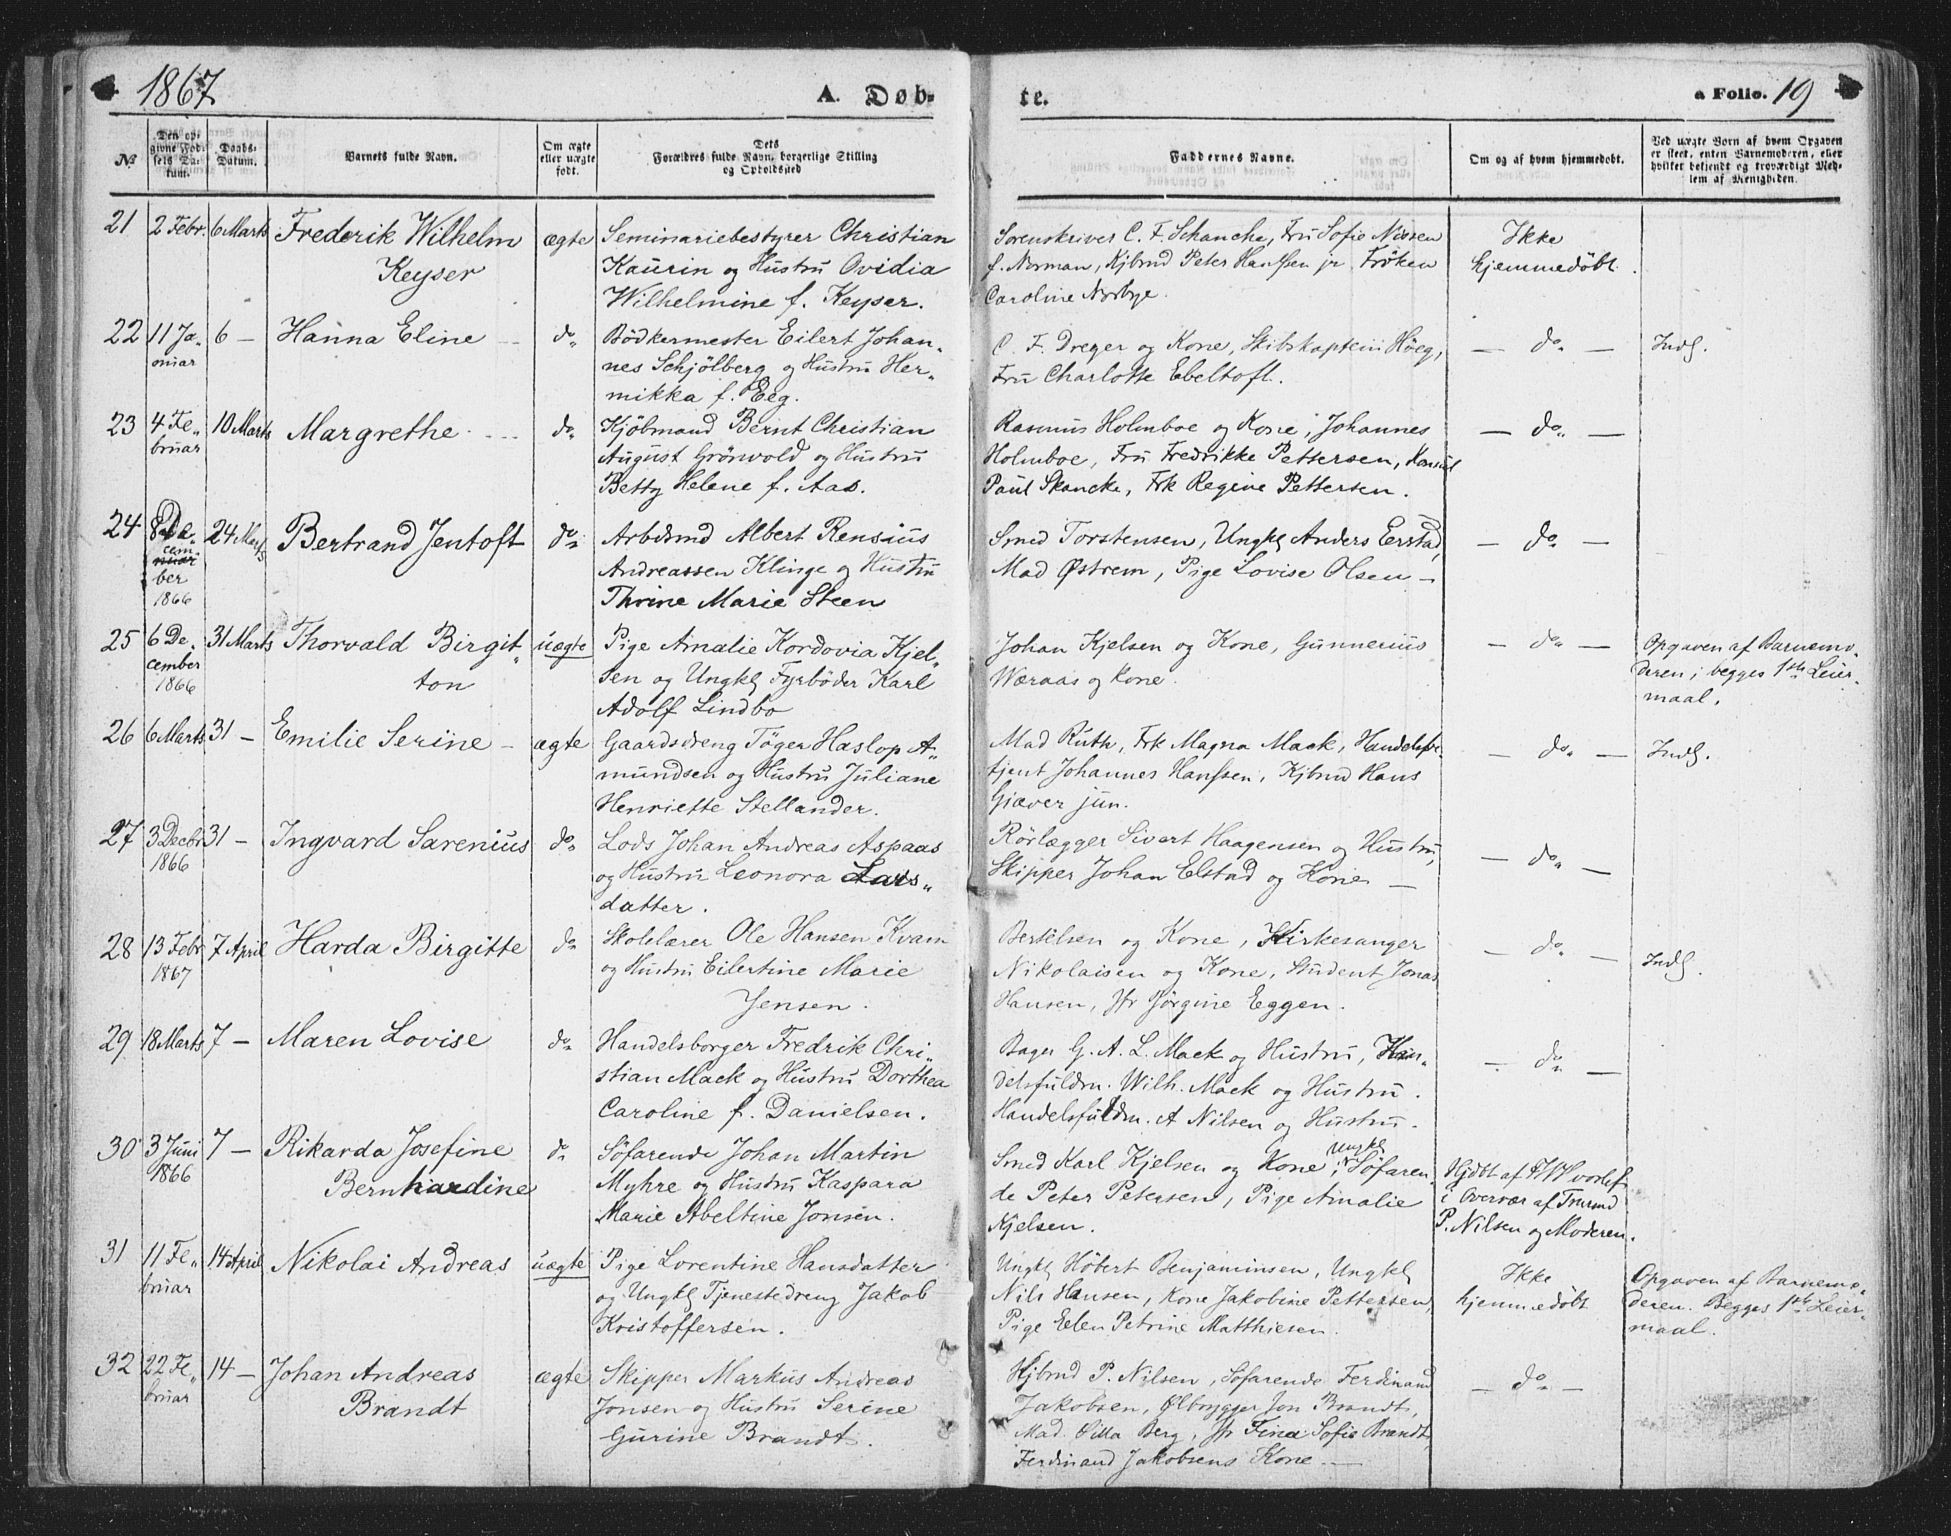 1867. A. Døb-
te. a Folio. 19
No
Den op-
givne Fød-
sels Da-
tum.
Daabs-
Datum.
Barnets fulde Navn.
Om ægte
eller uægte
født.
Dets
Forældres fulde Navn, borgerlige Stilling
og Opholdssted
Faddernes Navne.
Om og af hvem hjemmedøbt.
Ved uægte Børn af hvem Opgaven
er skeet, enten Barnemoderen, eller
hvilket bekjendt og troværdigt Med-
lem af Menigheden.
21 2 Febr. 6 Marts Frederik Wilhelm ægte Seminariebestyrer Christian Sorenskriver C. F. Schancke, Fru Sofie Nissen Ikke
Keyser Kaurin og Hustru Ovidia f. Norman, Kjbmd Peter Hanssen jr. Frøken hjemmedøbt.
Wilhelmine f. Keyser. Caroline Norbye.
22 11 Ja- 6 — Hanna Eline do Bödkermester Eilert Johan- C. F. Dreyer og Kone, Skibskaptein Höeg, — do — Indg.
nuar nes Schjölberg og Hustru Her- Fru Charlotte Ebeltoft.
mikka f. Eeg.
23 4 Fe- 10 Marts Margrethe do Kjöbmand Bernt Christian Rasmus Holmboe og Kone, Johannes — do —
bruar August Grönvold og Hustru Holmboe, Fru Fredrikke Pettersen, Konsul
Betty Helene f. Aas. Paul Skancke, Frk Regine Pettersen.
24 8 De- 24 Marts Bertrand Jentoft do Arbdsmd Albert Rensius Smed Torstensen, Ungkl Anders Erstad, — do —
cem- Andreassen Klinge og Hustru Mad Østrem, Pige Lovise Olsen —
ber Thrine Marie Steen
1866
25 6 De- 31 Marts Thorvald Birgit- uægte Pige Amalie Kordovia Kjel- Johan Kjelsen og Kone, Gunnerius — do — Opgaven af Barnemo-
cember ton sen og Ungkl Fyrböder Karl Weraas og Kone. deren; begges 1ste Leier-
1866 Adolf Lindbo maal.
26 6 Marts 31 — Emilie Serine — ægte Gaardsdreng Töger Haslop A- Mad Ruth, Frk Magna Mack, Handelsbe- — do — Indg.
mundsen og Hustru Juliane tjent Johannes Hanssen, Kjbmd Hans
Henriette Stellander. Giæver jun.
27 3 Decbr 31 — Ingvard Sarenius do Lods Johan Andreas Aspaas Rörlægger Sivert Haagensen og Hustru, — do —
1866 og Hustru Leonora Lars- Skipper Johan Elstad og Kone —
datter.
28 13 Febr 7 April Harda Birgitte do Skolelærer Ole Hansen Kvam Bertelsen og Kone, Kirkesanger — do — Indg.
1867 og Hustru Eilertine Marie Nikolaisen og Kone, Student Jonas
Jensen. Hansen, Jfr Jörgine Eggen.
29 18 Marts 7 — Maren Lovise do Handelsborger Fredrik Chri- Bager G. A. L. Mack og Hustru, Han- — do —
stian Mack og Hustru Dorthea delsfuldm. Wilh. Mack og Hustru.
Caroline f. Danielsen. Handelsfuldm. A Nilsen og Hustru.
30 3 Juni 7 — Rikarda Josefine do Söfarende Johan Martin Smed Karl Kjelsen og Kone, Ungkl Söfaren- Hjdbt af
1866 Bernhardine Myhre og Hustru Kaspara de Peter Petersen, Pige Amalie i Overvær af
Marie Abeltine Jonsen. Kjelsen. P. Nilsen og Moderen.
31 11 Fe- 14 April Nikolai Andreas uægte Pige Lorentine Hansdatter Ungkl Höbert Benjaminsen, Ungkl Ikke Opgaven af Barnemo-
bruar og Ungkl Tjenestedreng Jakob Nils Hansen, Kone Jakobine Pettersen, hjemmedøbt deren. Begges 1ste Leier-
Kristoffersen. Pige Elen Petrine Matthiesen. maal.
32 22 Fe- 14 — Johan Andreas ægte Skipper Markus Andreas Kjbmd P. Nilsen, Söfarende Ferdinand — do —
bruar Brandt Jonsen og Hustru Serine Jakobsen, Ølbrygger Jon Brandt,
Gurine Brandt. Mad. Berg, Jfr Fina Sofie Brandt,
Ferdinand Jakobsens Kone —